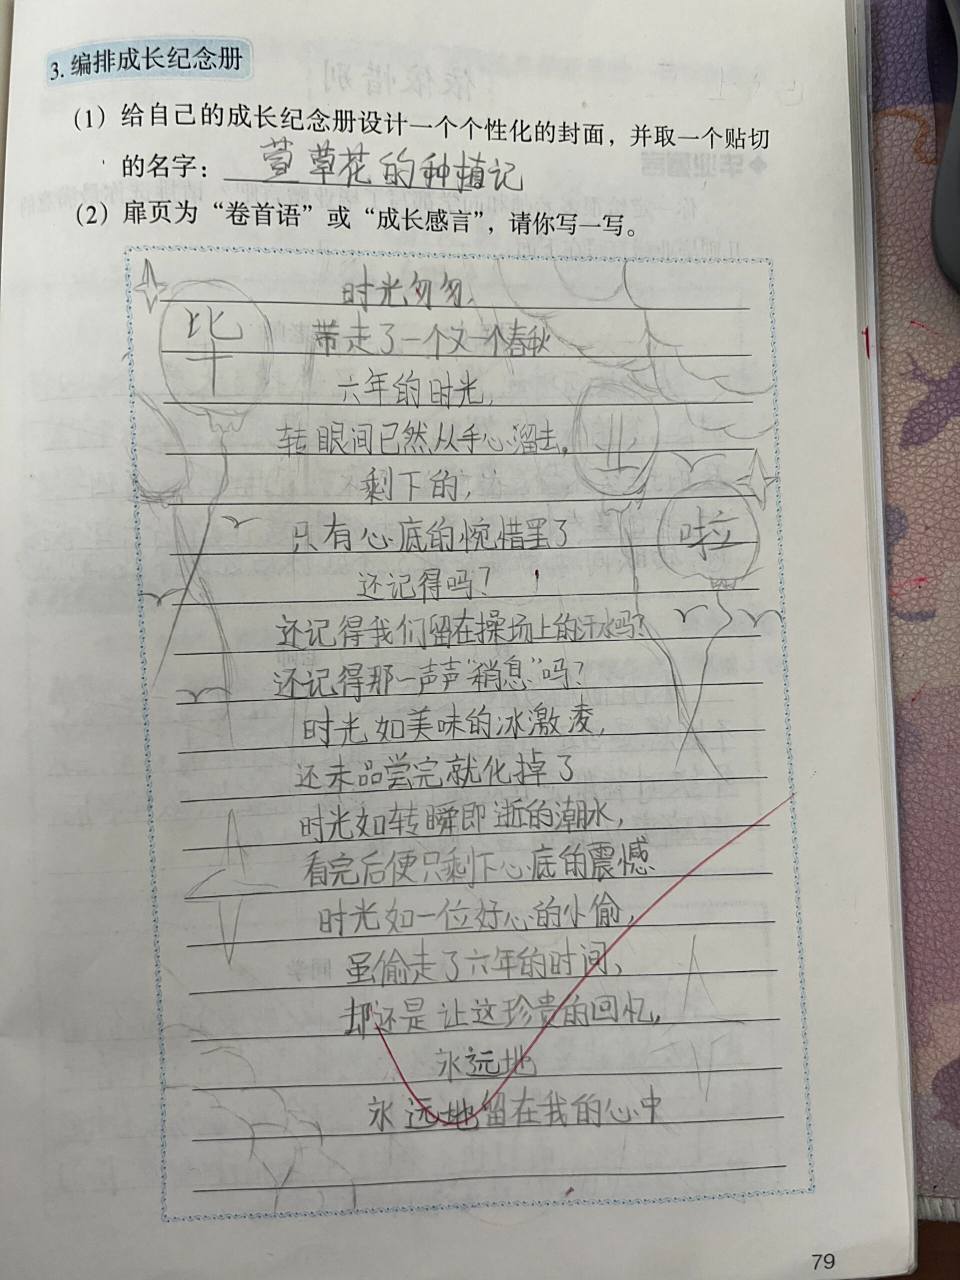 3. 编排成长纪念册
(1) 给自己的成长纪念册设计一个个性化的封面，并取一个贴切
的名字：萱草花的种植记
(2) 扉页为“卷首语”或“成长感言”，请你写一写。
时光匆匆,
带走了一个又一个春秋
六年的时光,
转眼间已然从手心溜去。
剩下的,
只有心底的惋惜罢了
还记得吗？
还记得我们留在操场上的汗水吗？
还记得那一声声“稍息”吗？
时光如美味的冰激凌,
还未品尝完就化掉了
时光如转瞬即逝的潮水,
看完后便只剩下心底的震憾
时光如一位好心的小偷,
虽偷走了六年的时间、
却还是让这珍贵的回忆,
永远地
永远地留在我的心中
毕
业
啦
79